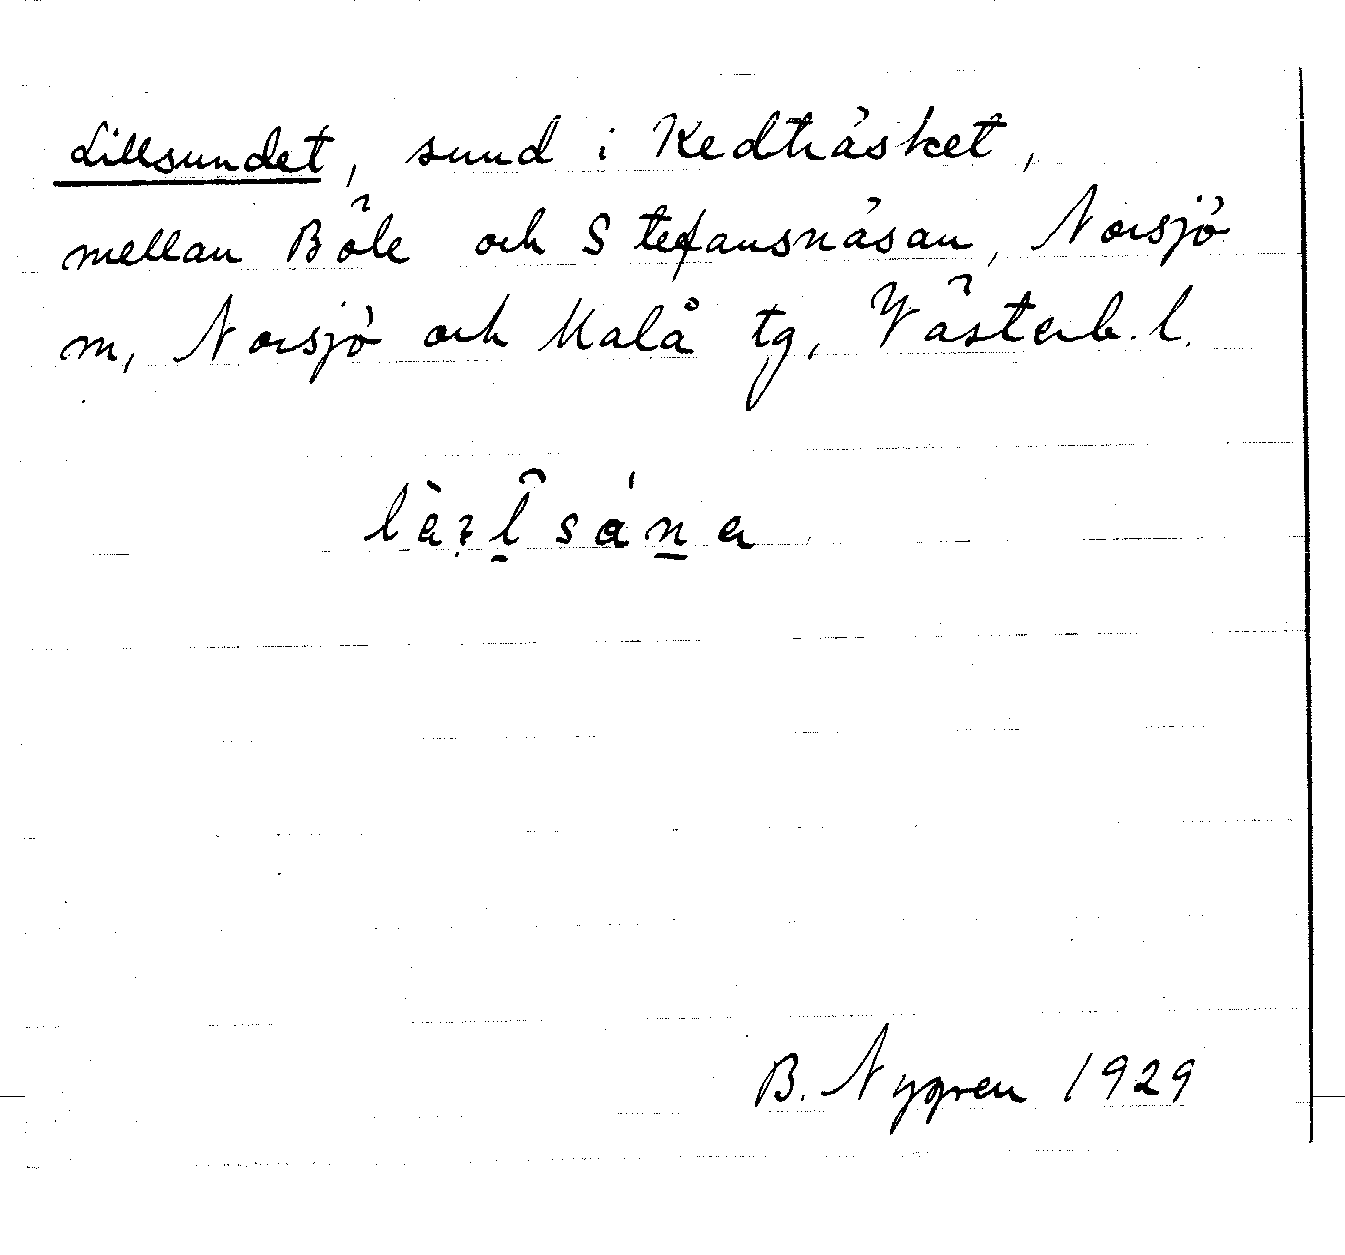 Lillsundet, sund i Kedträsket,
mellan Böle och Stefansnäsan, Norsjö
m, Norsjö och Malå tg, Västerb. l.
B. Nygren 1929